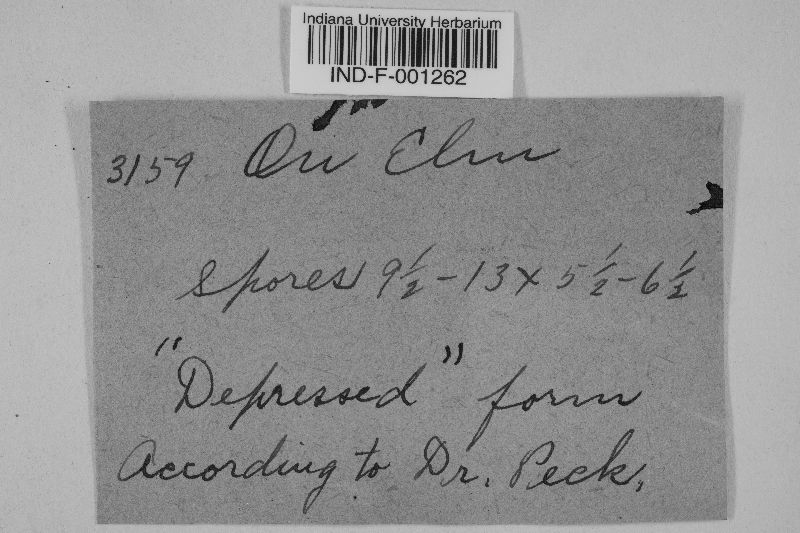 Indiana University Herbarium
IND-F-001262
3159 On Elm
Spores 9½-13 x 5½-6½
"Depressed" form
According to Dr. Peck.